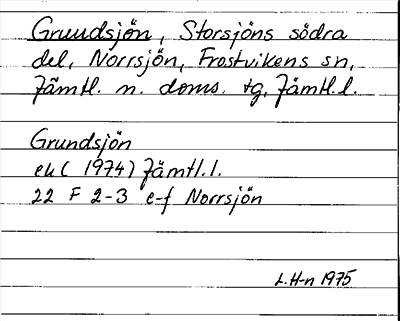 Grundsjön, Storsjöns södra
del, Norrsjön, Frostvikens sn,
Jämtl. n. doms. tg, Jämtl.l.
Grundsjön
ek ( 1974) Jämtl.l.
22 F 2-3 e-f Norrsjön
L.H-n 1975